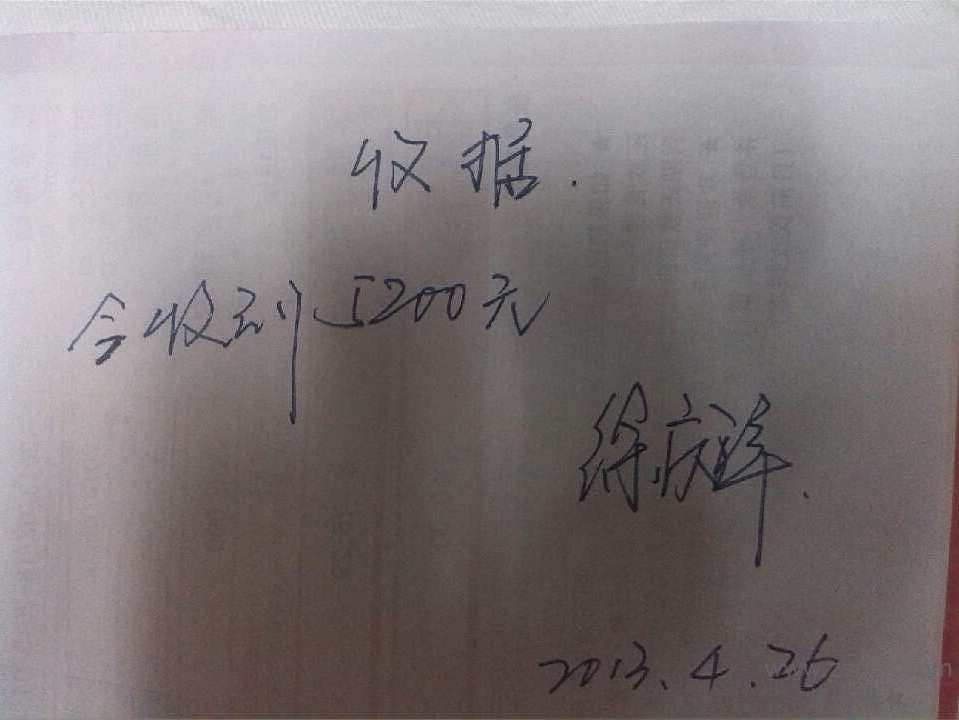 收据.
今收到5200元
徐庆祥.
2013.4.26